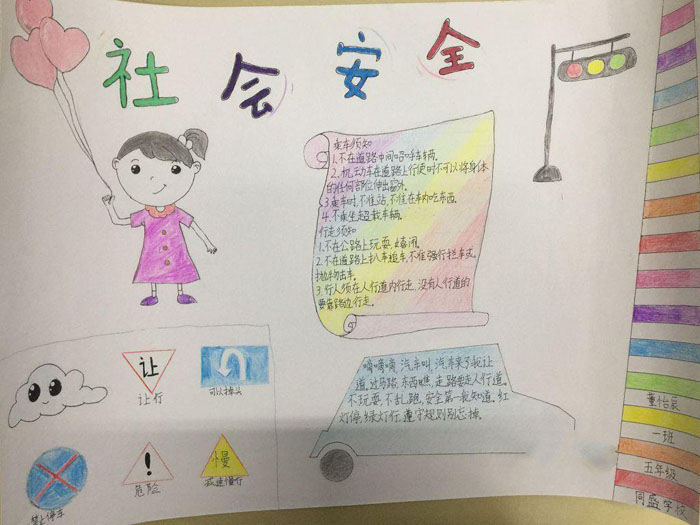 社会安全
乘车须知
1.不在道路中间招呼车辆。
2.机动车在道路上行使时不可以将身体
的任何部位伸出窗外。
3乘车时,不准站,不准在车内吃东西.
4.不乘坐超载车辆.
行走须知
1.不在公路上玩耍、嬉闹.
2.不在道路上扒车追车,不准强行拦车或
抛物出车.
3.行人须在人行道内行走,没有人行道的
要靠路边行走.
嘀嘀嘀,汽车叫,汽车来了我让
道。过马路,东西瞧,走路要走人行道。
不玩耍,不乱跑,安全第一我知道。红
灯停,绿灯行,遵守规则别忘掉。
让
让行
可以掉头
禁止停车
!
危险
慢
减速慢行
董怡辰
一班
五年级
同盛学校